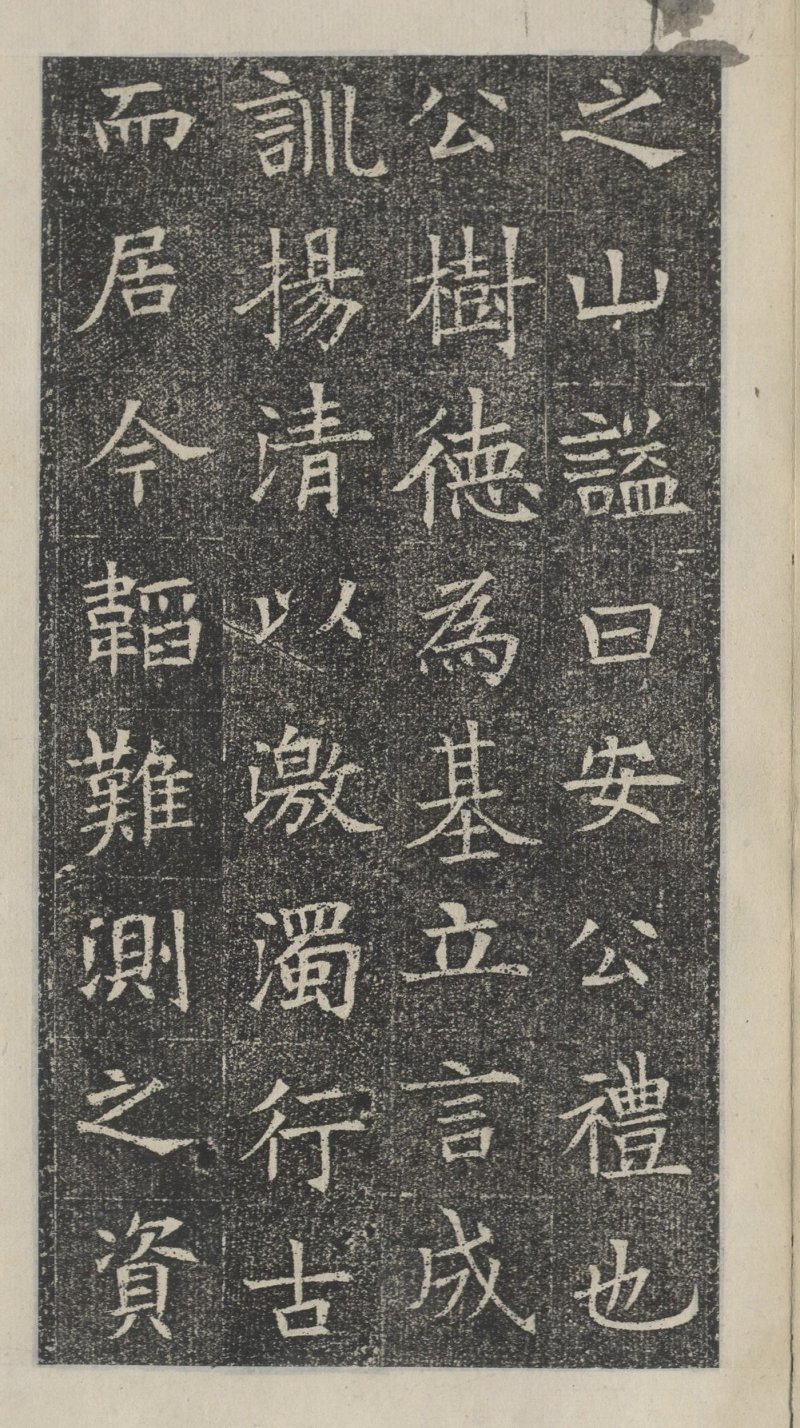 之山謚曰安公禮也
公樹徳為基立言成
訓揚清以激濁行古
而居今韜難測之資